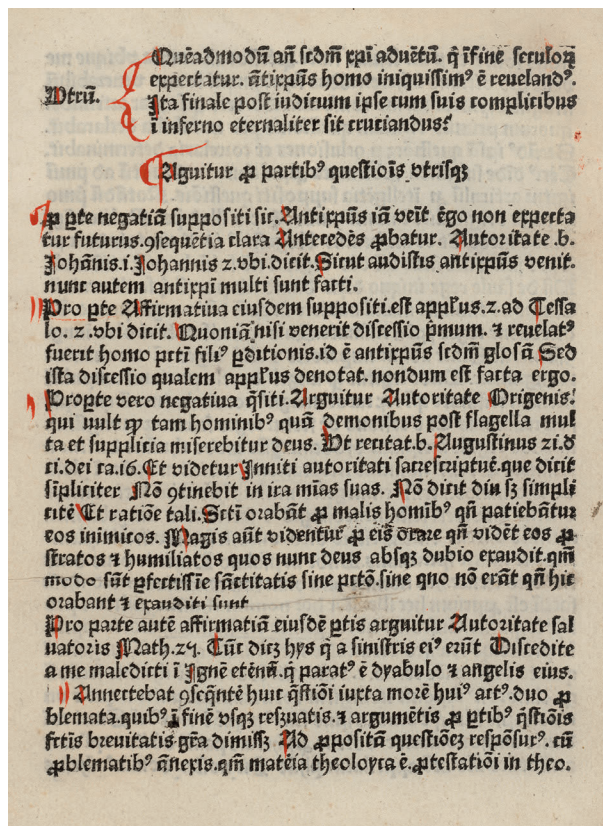 Quēadmodū añ scdm xp̄i advētū. q̄ īfine seculoꝝ
expectatur. ātixp̄us homo iniquissimꝰ ē reuelandꝰ.
Vtrū.
Ita finale post iudicium ipse cum suis complicibus
ī inferno eternaliter sit cruciandus?
Aguitur ꝓ partibꝰ questiōis vtrisqꝫ
ꝓ ꝑte negatiā suppositi sic. Antixp̄us iā veīt ēgo non expecta
tur futurus. ꝯsequētia clara Antecedēs ꝓbatur. Autoritate .b.
Johānis.i. Johannis 2. vbi.dicit. Sicut audistis antixp̄us venit.
nunc autem antixp̄i multi sunt facti.
Pro ꝑte Affirmatiua eiusdem suppositi.est app̄lus.2.ad Tessa
lo. 2. vbi dicit. Quoniā nisi venerit discessio p̄mum. ⁊ reuelatꝰ
fuerit homo pctī filiꝰ ꝑditionis.id ē antixp̄us scdm glosā Sed
ista discessio qualem app̄lus denotat. nondum est facta ergo.
Proꝑte vero negatiua q̄siti. Arguitur Autoritate Origenis.
qui uult ꝙ tam hominibꝰ quā demonibus post flagella mul
ta et supplicia miserebitur deus. Vt recitat.b. Augustinus 21.d̄
ci.dei ca.16. Et videtur Inniti autoritati sacrescriptuē.que dicit
sīpliciter Nō ꝯtinebit in ira mīas suas. Nō dicit diu sꝫ simpli
citē Et ratiōe tali. Sctī orabāt ꝓ malis homībꝰ qñ patiebātur
eos inimicos. Magis aūt videntur ꝓ eis ōrare qñ vidēt eos ꝓ
stratos ⁊ humiliatos quos nunc deus absqꝫ dubio exaudit.qm̄
modo sūt ꝑfectissīe sāctitatis sine pctō.sine quo nō erāt qñ hic
orabant ⁊ exauditi sunt
Pro parte autē affirmatiā eiusdē ꝑtis arguitur Autoritate sal
uatoris Math.25. Tūc dicꝫ hys q̄ a sinistris eiꝰ erūt Discedite
a me maledicti ī Ignē etēnū.q̄ paratꝰ ē dyabulo ⁊ angelis eius.
Annectebat ꝯseq̄ntē huic q̄stiōi iuxta morē huiꝰ actꝰ.duo ꝓ
blemata.quibꝰ ī finē vsqꝫ resꝫuatis.⁊ argumētis ꝓ ꝑtibꝰ q̄stiōis
fctīs breuitatis gr̄a dimissꝫ Ad ꝓpositā questiōeꝫ respōsurꝰ. cū
ꝓblematibꝰ ānexis.qm̄ matēia theoloyca ē.ꝓtestatiōi in theo.